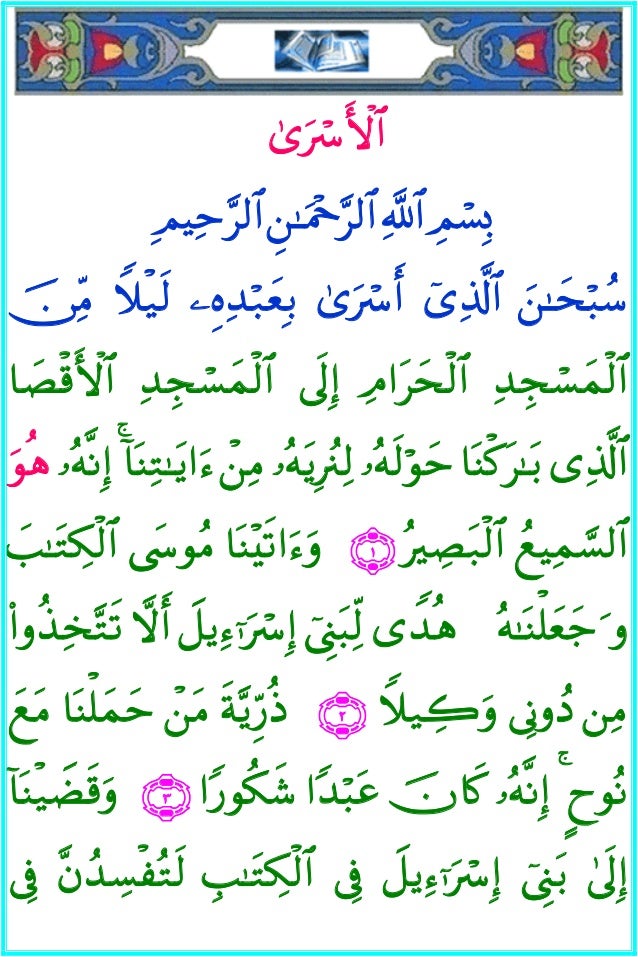 ٱلْأَسْرَىٰ
بِسْمِ ٱللَّهِ ٱلرَّحْمَـٰنِ ٱلرَّحِيمِ
سُبْحَـٰنَ ٱلَّذِىٓ أَسْرَىٰ بِعَبْدِهِۦ لَيْلًا مِّنَ
ٱلْمَسْجِدِ ٱلْحَرَامِ إِلَى ٱلْمَسْجِدِ ٱلْأَقْصَا
ٱلَّذِى بَـٰرَكْنَا حَوْلَهُۥ لِنُرِيَهُۥ مِنْ ءَايَـٰتِنَآ ۚ إِنَّهُۥ هُوَ
ٱلسَّمِيعُ ٱلْبَصِيرُ ١ وَءَاتَيْنَا مُوسَى ٱلْكِتَـٰبَ
وَجَعَلْنَـٰهُ هُدًى لِّبَنِىٓ إِسْرَٰٓءِيلَ أَلَّا تَتَّخِذُوا۟
مِن دُونِى وَكِيلًا ٢ ذُرِّيَّةَ مَنْ حَمَلْنَا مَعَ
نُوحٍ ۚ إِنَّهُۥ كَانَ عَبْدًا شَكُورًا ٣ وَقَضَيْنَآ
إِلَىٰ بَنِىٓ إِسْرَٰٓءِيلَ فِى ٱلْكِتَـٰبِ لَتُفْسِدُنَّ فِى